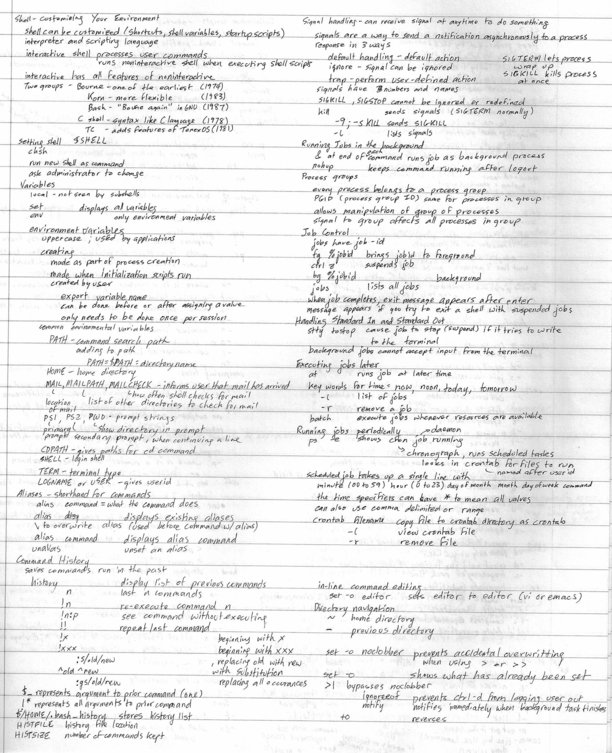 Shell - customizing Your Environment
shell can be customized (shortcuts, shell variables, startup scripts)
interpreter and scripting language
interactive shell processes user commands
runs noninteractive shell when executing shell scripts
interactive has all features of noninteractive
Two groups - Bourne - one of the earliest (1979)
Korn - more flexible (1983)
Bash - "Bourne again" in GNU (1987)
C shell - syntax like C language (1978)
TC - adds features of Tenex OS (1981)
Setting shell $SHELL
chsh
run new shell as command
ask administrator to change
Variables
local - not seen by subshells
set displays all variables
env only environment variables
environment variables
uppercase, used by applications
creating
made as part of process creation
made when initialization scripts run
created by user
export variable name
can be done before or after assigning a value
only needs to be done once per session
common environmental variables
PATH - command search path
adding to path
PATH=$PATH=directoryname
HOME - home directory
MAIL, MAILPATH, MAILCHECK - informs user that mail has arrived
how often shell checks for mail
location of mail
list of other directories to check for mail
PS1, PS2, PWD - prompt strings
primary prompt
show directory in prompt
secondary prompt, when continuing a line
CDPATH - gives paths for cd command
SHELL - login shell
TERM - terminal type
LOGNAME or USER - gives userid
Aliases - shorthand for commands
alias command=what the command does
alias displays existing aliases
\ to overwrite alias (used before command w/ alias)
alias command displays alias command
unalias unset an alias
Command History
saves commands run in the past
history display list of previous commands
n last n commands
!n re-execute command n
!n:p see command without executing
!! repeat last command
!x beginning with x
!xxx beginning with xxx
:s/old/new , replacing old with new
^old^new with substitution
:gs/old/new replacing all occurances
$_ represents argument to prior command (one)
!* represents all arguments to prior command
$/HOME/.bash_history stores history list
HISTFILE history file location
HISTSIZE number of commands kept
Signal handling - can receive signal at anytime to do something
signals are a way to send a notification asynchronously to a process
response in 3 ways
default handling - default action
ignore - signal can be ignored
trap - perform user-defined action
SIGTERM lets process wrap up
SIGKILL kills process at once
signals have numbers and names
SIGKILL, SIGSTOP cannot be ignored or redefined
kill sends signals (SIGTERM normally)
-9; -s KILL sends SIGKILL
-l lists signals
Running Jobs in the background
& at end of command runs job as background process
nohup keeps command running after logout
Process groups
every process belongs to a process group
PGID (process group ID) same for processes in group
allows manipulation of group of processes
signal to group affects all processes in group
Job Control
jobs have job-id
fg %jobid brings jobid to foreground
ctrl z suspends job
bg %jobid background
jobs lists all jobs
when job completes, exit message appears after enter
message appears if you try to exit a shell with suspended jobs
Handling Standard In and Standard Out
stty tostop cause job to stop (suspend) if it tries to write
to the terminal
background jobs cannot accept input from the terminal
Executing jobs later
at runs job at later time
key words for time: now, noon, today, tomorrow
-l list of jobs
-r remove a job
batch execute jobs whenever resources are available
Running jobs periodically
daemon
ps -e shows cron job running
chronograph, runs scheduled tasks
looks in crontab for files to run
named after userid
scheduled job takes up a single line with
minute (00 to 59) hour (0 to 23) day of month month day of week command
the time specifiers can have * to mean all values
can also use comma delimited or range
crontab filename copy file to crontab directory as crontab
-l view crontab file
-r remove file
in-line command editing
set -o editor sets editor to editor (vi or emacs)
Directory navigation
~ home directory
- previous directory
set -o noclobber prevents accidental overwritting
when using > or >>
set -o shows what has already been set
>| bypasses noclobber
ignoreeof prevents ctrl-d from logging user out
notify notifies immediately when background task finishes
+o reverses